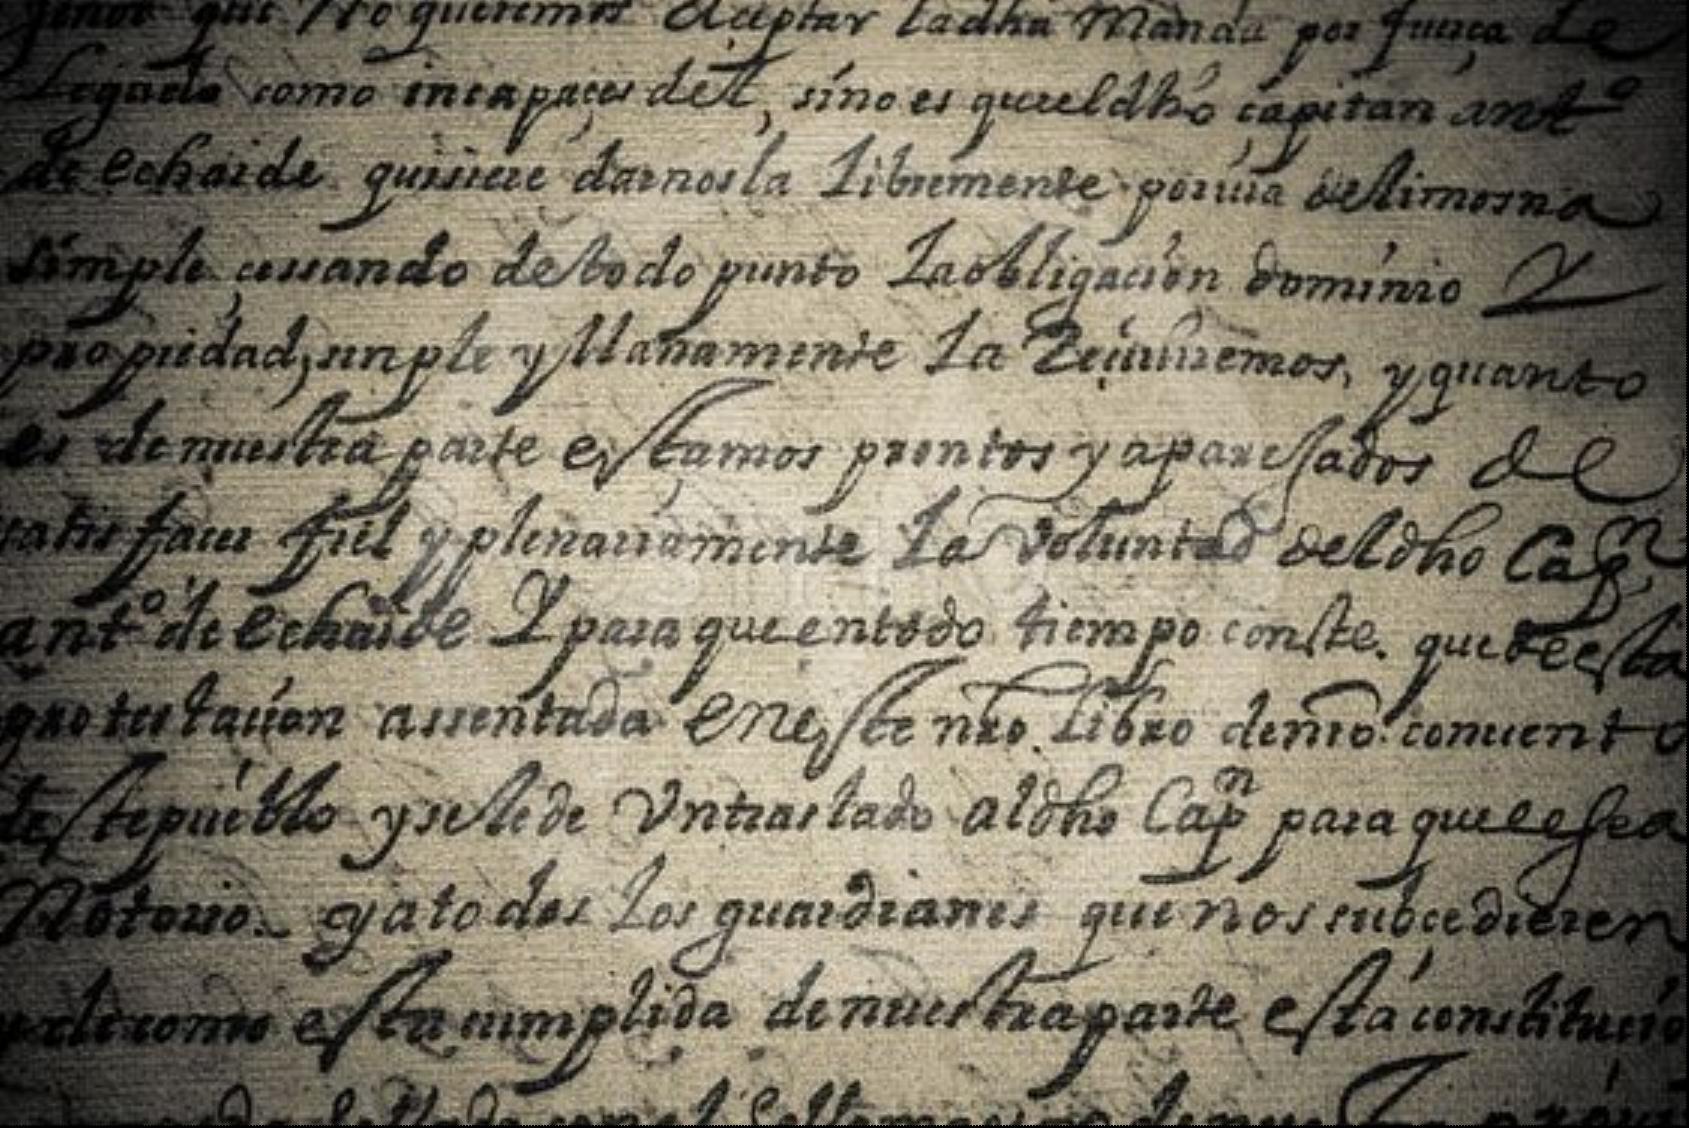 que no queremos aceptar la dha manda por fuerça de
Legado como incapaçes del, sino es que el dho capitan antº
de echaide quisiere darnosla libremente por via de limosna
simple çessando de todo punto La obligaçion dominio Y
propiedad, simple y llanamente La Reçiuiremos, y quanto
es de nuestra parte estamos prontos y aparesados de
satisfacer fiel y plenariamente La voluntad del dho Capn
antº de echaide Y para que en todo tiempo conste. que de esta
protestaçion assentada en este nro. Libro de nro. conuento
deste pueblo y se le de Vn traslado al dho Capn para que le sea
Notorio. y a todos los guardianes que nos subçedieren
como esta cumplida de nuestra parte esta constituçio